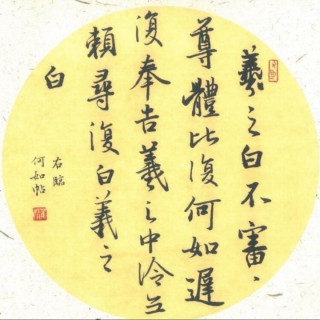 羲之白不審、
尊體比復何如遲
復奉告羲之中冷無
賴尋復白羲之
白
右臨
何如帖